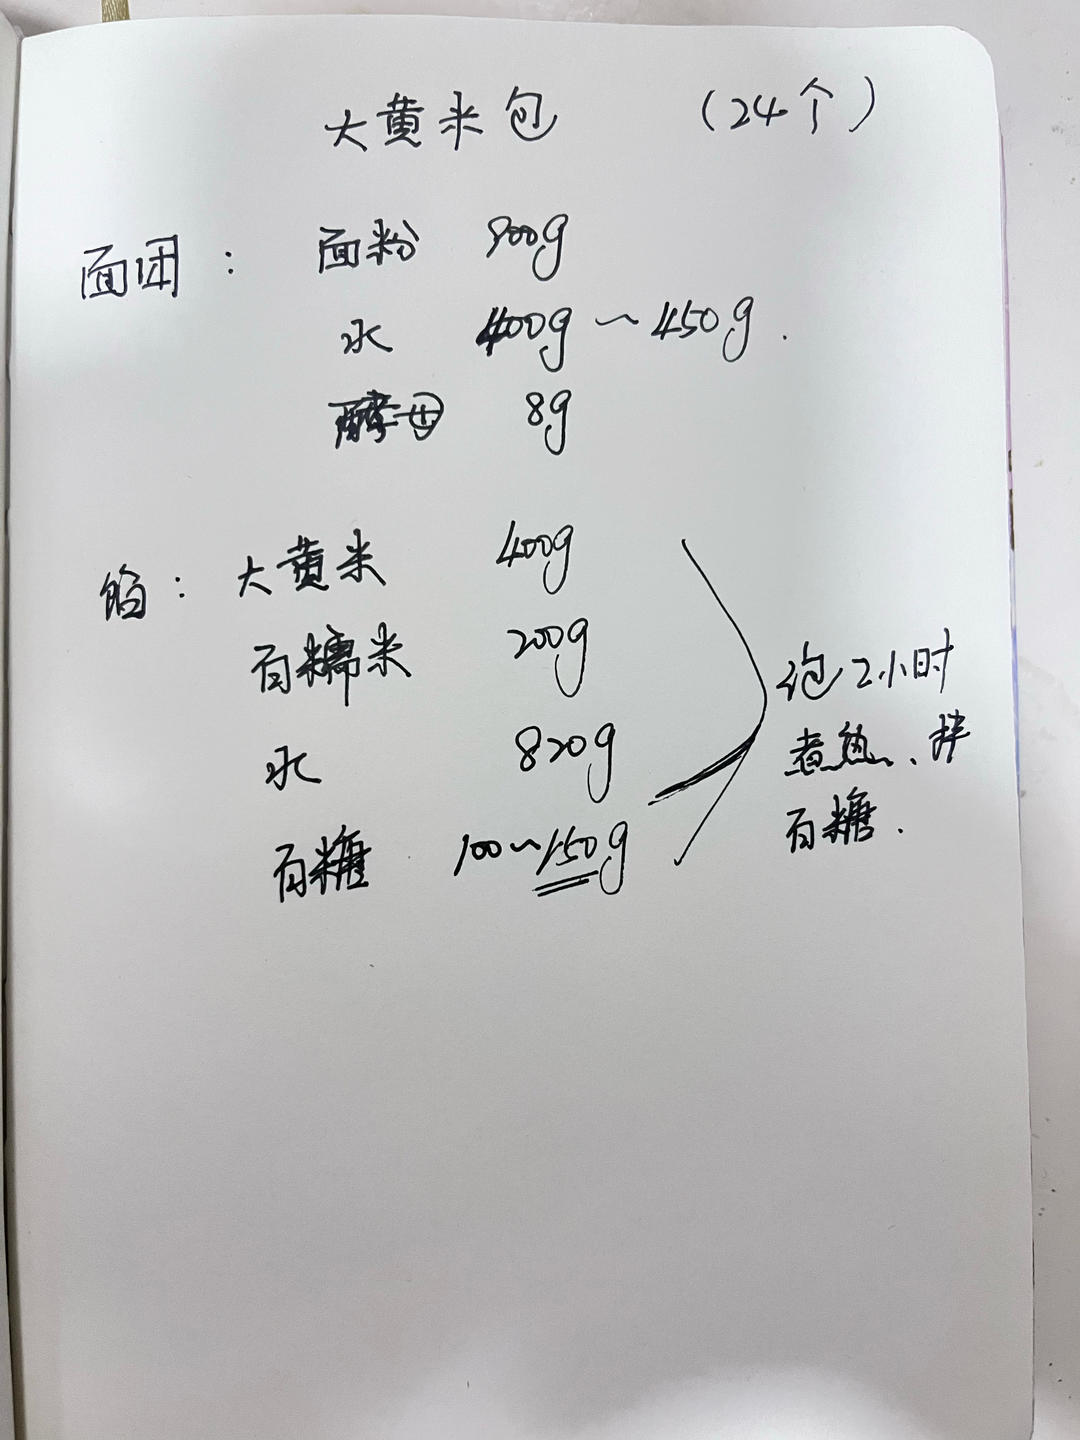 大黄米包 (24个)
面团: 面粉 800g
水 400g~450g.
酵母 8g
馅: 大黄米 400g
白糯米 200g
水 820g
白糖 100~150g
泡2小时
煮熟、拌
白糖.